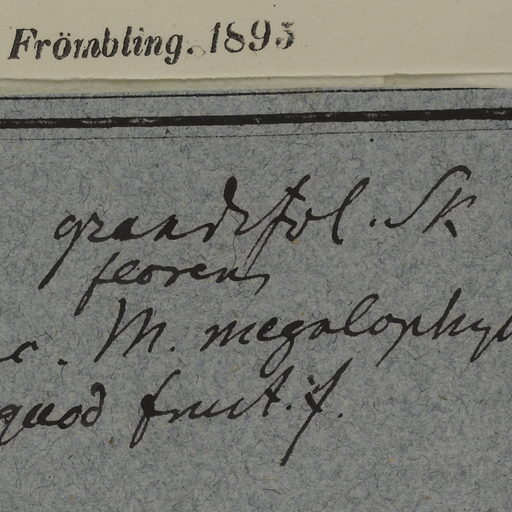 Frömbling. 1895
grandifol. Sk
florens
c. M. megalophyl
quod fruct. f.